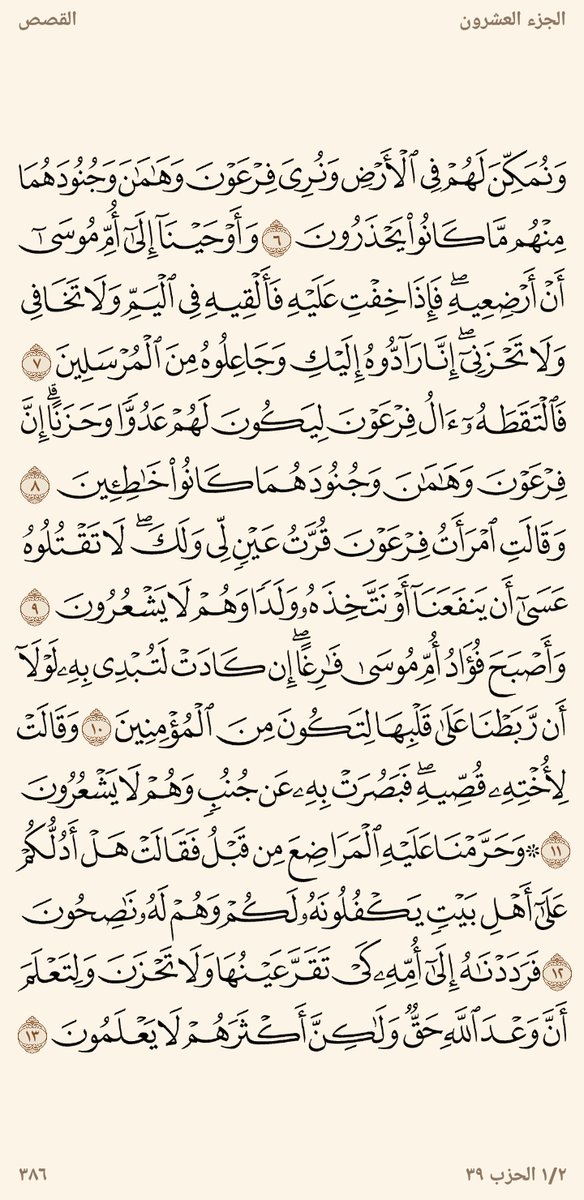 الجزء العشرون
القصص
وَنُمَكِّنَ لَهُمْ فِي ٱلْأَرْضِ وَنُرِيَ فِرْعَوْنَ وَهَٰمَٰنَ وَجُنُودَهُمَا
مِنْهُم مَّا كَانُوا۟ يَحْذَرُونَ ٦ وَأَوْحَيْنَآ إِلَىٰٓ أُمِّ مُوسَىٰٓ
أَنْ أَرْضِعِيهِ ۖ فَإِذَا خِفْتِ عَلَيْهِ فَأَلْقِيهِ فِي ٱلْيَمِّ وَلَا تَخَافِي
وَلَا تَحْزَنِيٓ ۖ إِنَّا رَآدُّوهُ إِلَيْكِ وَجَاعِلُوهُ مِنَ ٱلْمُرْسَلِينَ ٧
فَٱلْتَقَطَهُۥٓ ءَالُ فِرْعَوْنَ لِيَكُونَ لَهُمْ عَدُوًّا وَحَزَنًا ۗ إِنَّ
فِرْعَوْنَ وَهَٰمَٰنَ وَجُنُودَهُمَا كَانُوا۟ خَٰطِـِٔينَ ٨
وَقَالَتِ ٱمْرَأَتُ فِرْعَوْنَ قُرَّتُ عَيْنٍ لِّي وَلَكَ ۖ لَا تَقْتُلُوهُ
عَسَىٰٓ أَن يَنفَعَنَآ أَوْ نَتَّخِذَهُۥ وَلَدًا وَهُمْ لَا يَشْعُرُونَ ٩
وَأَصْبَحَ فُؤَادُ أُمِّ مُوسَىٰ فَٰرِغًا ۖ إِن كَادَتْ لَتُبْدِي بِهِۦ لَوْلَآ
أَن رَّبَطْنَا عَلَىٰ قَلْبِهَا لِتَكُونَ مِنَ ٱلْمُؤْمِنِينَ ١٠ وَقَالَتْ
لِأُخْتِهِۦ قُصِّيهِ ۖ فَبَصُرَتْ بِهِۦ عَن جُنُبٍ وَهُمْ لَا يَشْعُرُونَ
١١ ۞ وَحَرَّمْنَا عَلَيْهِ ٱلْمَرَاضِعَ مِن قَبْلُ فَقَالَتْ هَلْ أَدُلُّكُمْ
عَلَىٰٓ أَهْلِ بَيْتٍ يَكْفُلُونَهُۥ لَكُمْ وَهُمْ لَهُۥ نَٰصِحُونَ
١٢ فَرَدَدْنَٰهُ إِلَىٰٓ أُمِّهِۦ كَيْ تَقَرَّ عَيْنُهَا وَلَا تَحْزَنَ وَلِتَعْلَمَ
أَنَّ وَعْدَ ٱللَّهِ حَقٌّ وَلَٰكِنَّ أَكْثَرَهُمْ لَا يَعْلَمُونَ ١٣
١/٢ الحزب ٣٩
٣٨٦